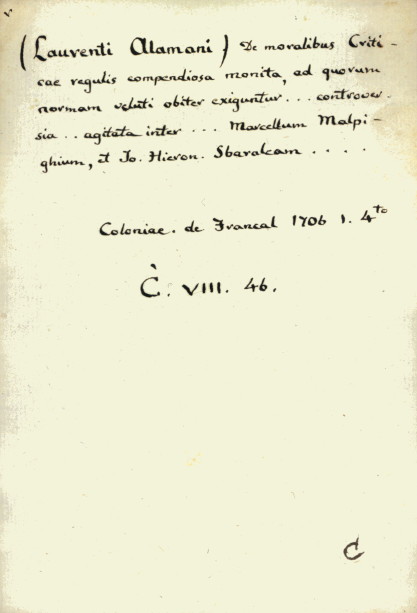 (Laurenti Alamani) De moralibus Criti-
cae regulis compendiosa monita, ad quorum
normam veluti obiter exiguntur... controver-
sia.. agitata inter ... Marcellum Malpi-
ghium, et Jo. Hieron. Sbaraleam ....
Coloniae. de Francal 1706 1. 4to
C. VIII. 46.
C